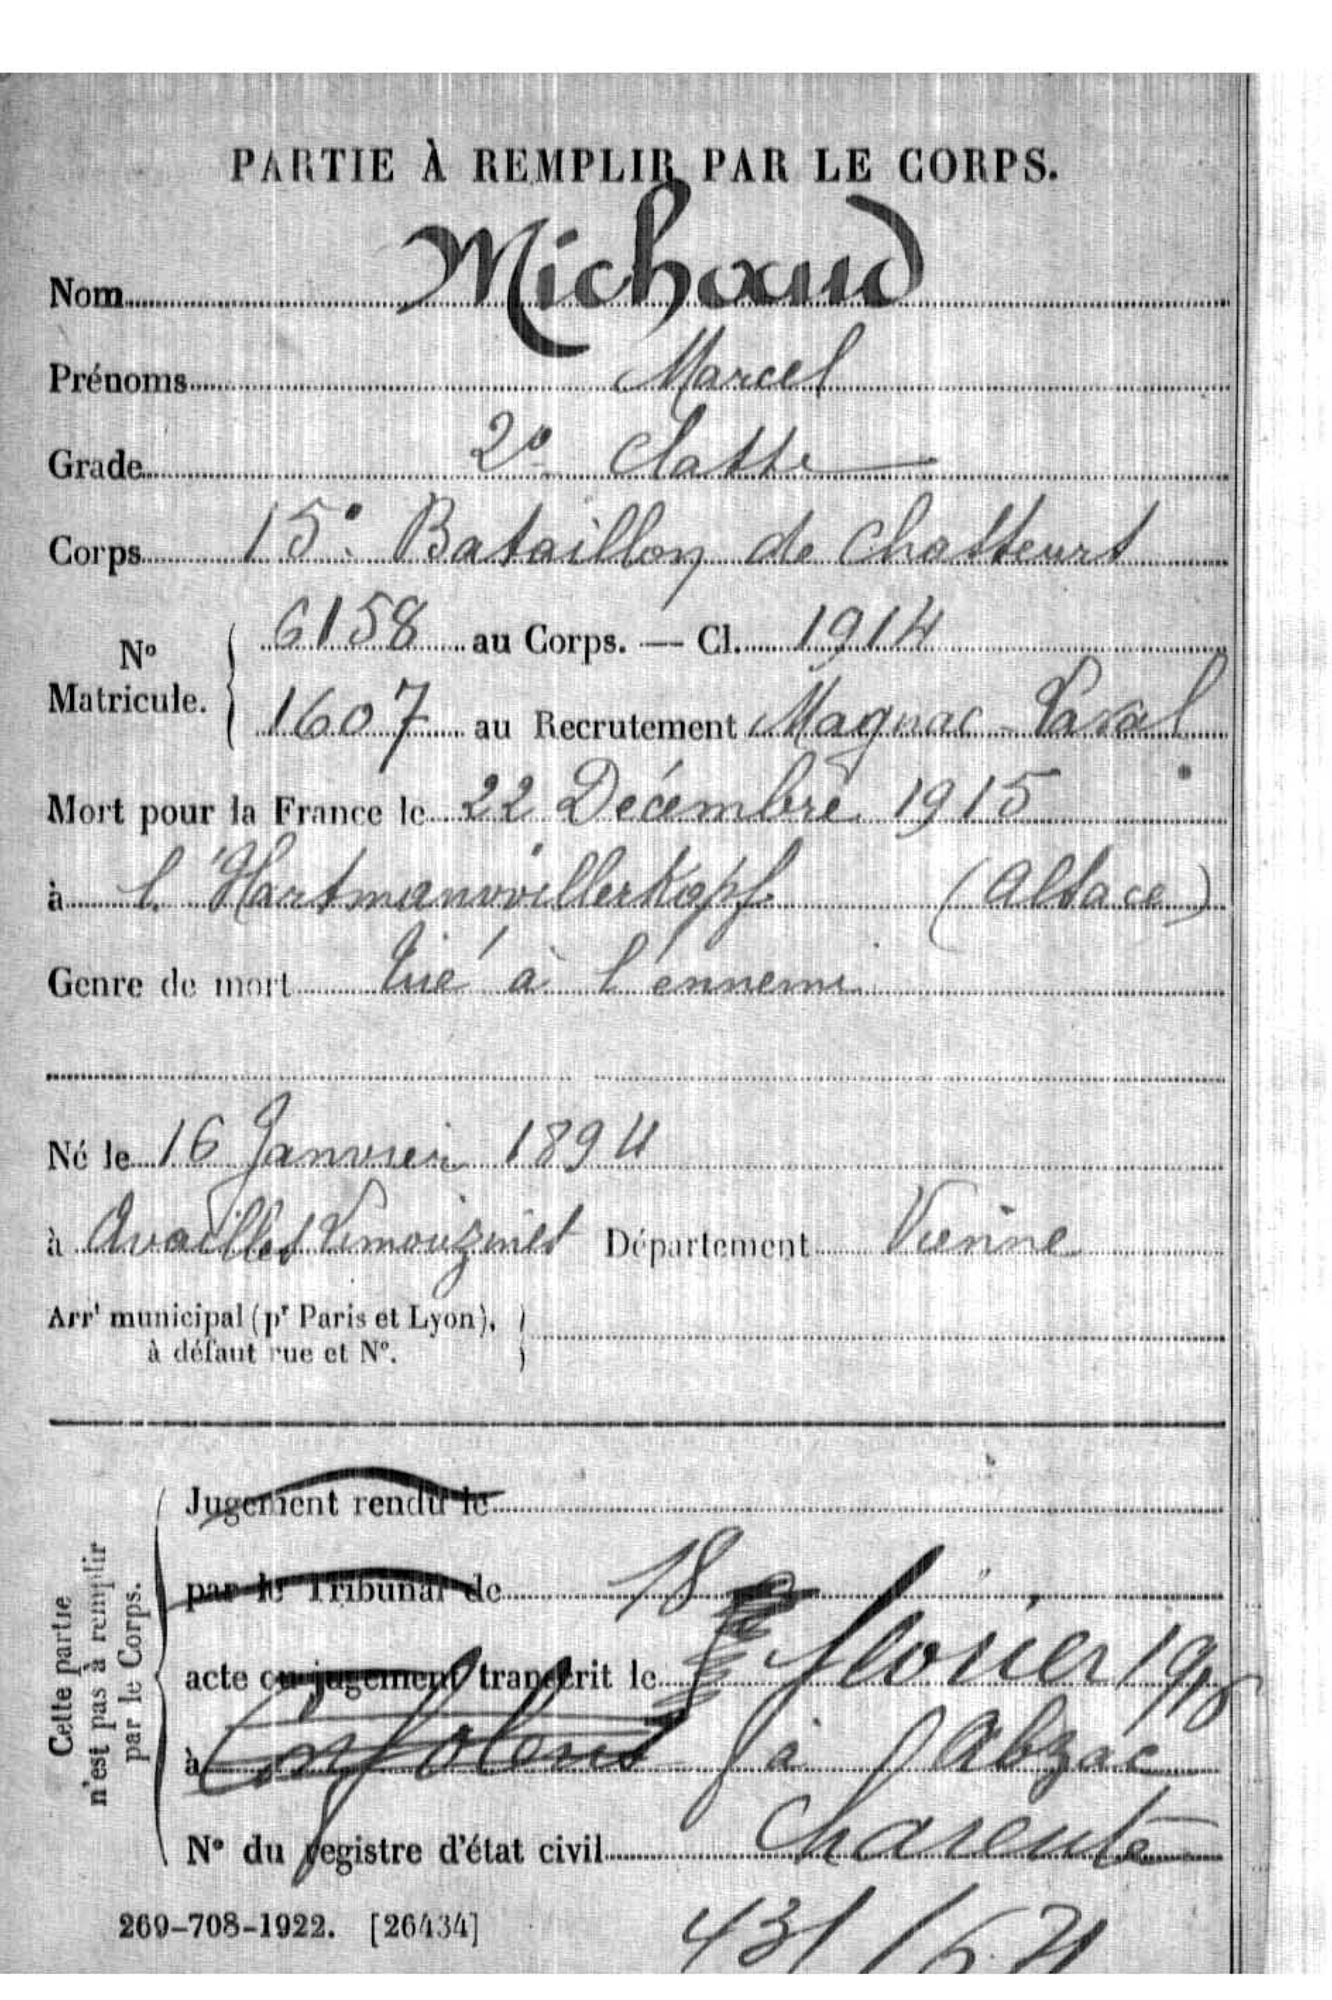 PARTIE À REMPLIR PAR LE CORPS.
Nom Michaud
Prénoms Marcel
Grade 2e Classe
Corps 15e Bataillon de Chasseurs
N° Matricule.
6158 au Corps. — Cl. 1914
1607 au Recrutement Magnac-Laval
Mort pour la France le 22 Décembre 1915
à l'Hartmanvvillerkopf (Alsace)
Genre de mort Tué à l'ennemi
Né le 16 Janvier 1894
à Availles Limouzines Département Vienne
Arrt municipal (pr Paris et Lyon),
à défaut rue et N°.
Cette partie
n'est pas à remplir
par le Corps.
Jugement rendu le
par le Tribunal de 18
acte ou jugement transcrit le février
à Confolens à Abzac
Charente
N° du registre d'état civil
269-708-1922. [26434]